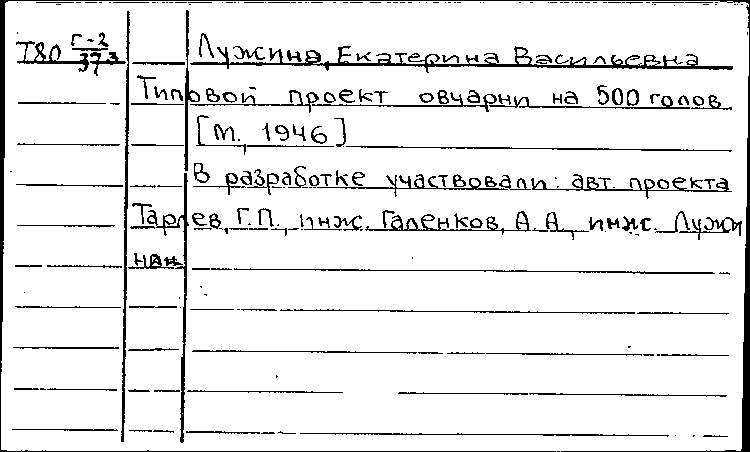 Т80 Г-2/373 Лужина, Екатерина Васильевна
Типовой проект овчарни на 500 голов
[М., 1946]
В разработке участвовали: авт. проекта
Тарлев, Г.П., инж. Галенков, А.А., инж. Лужи
на